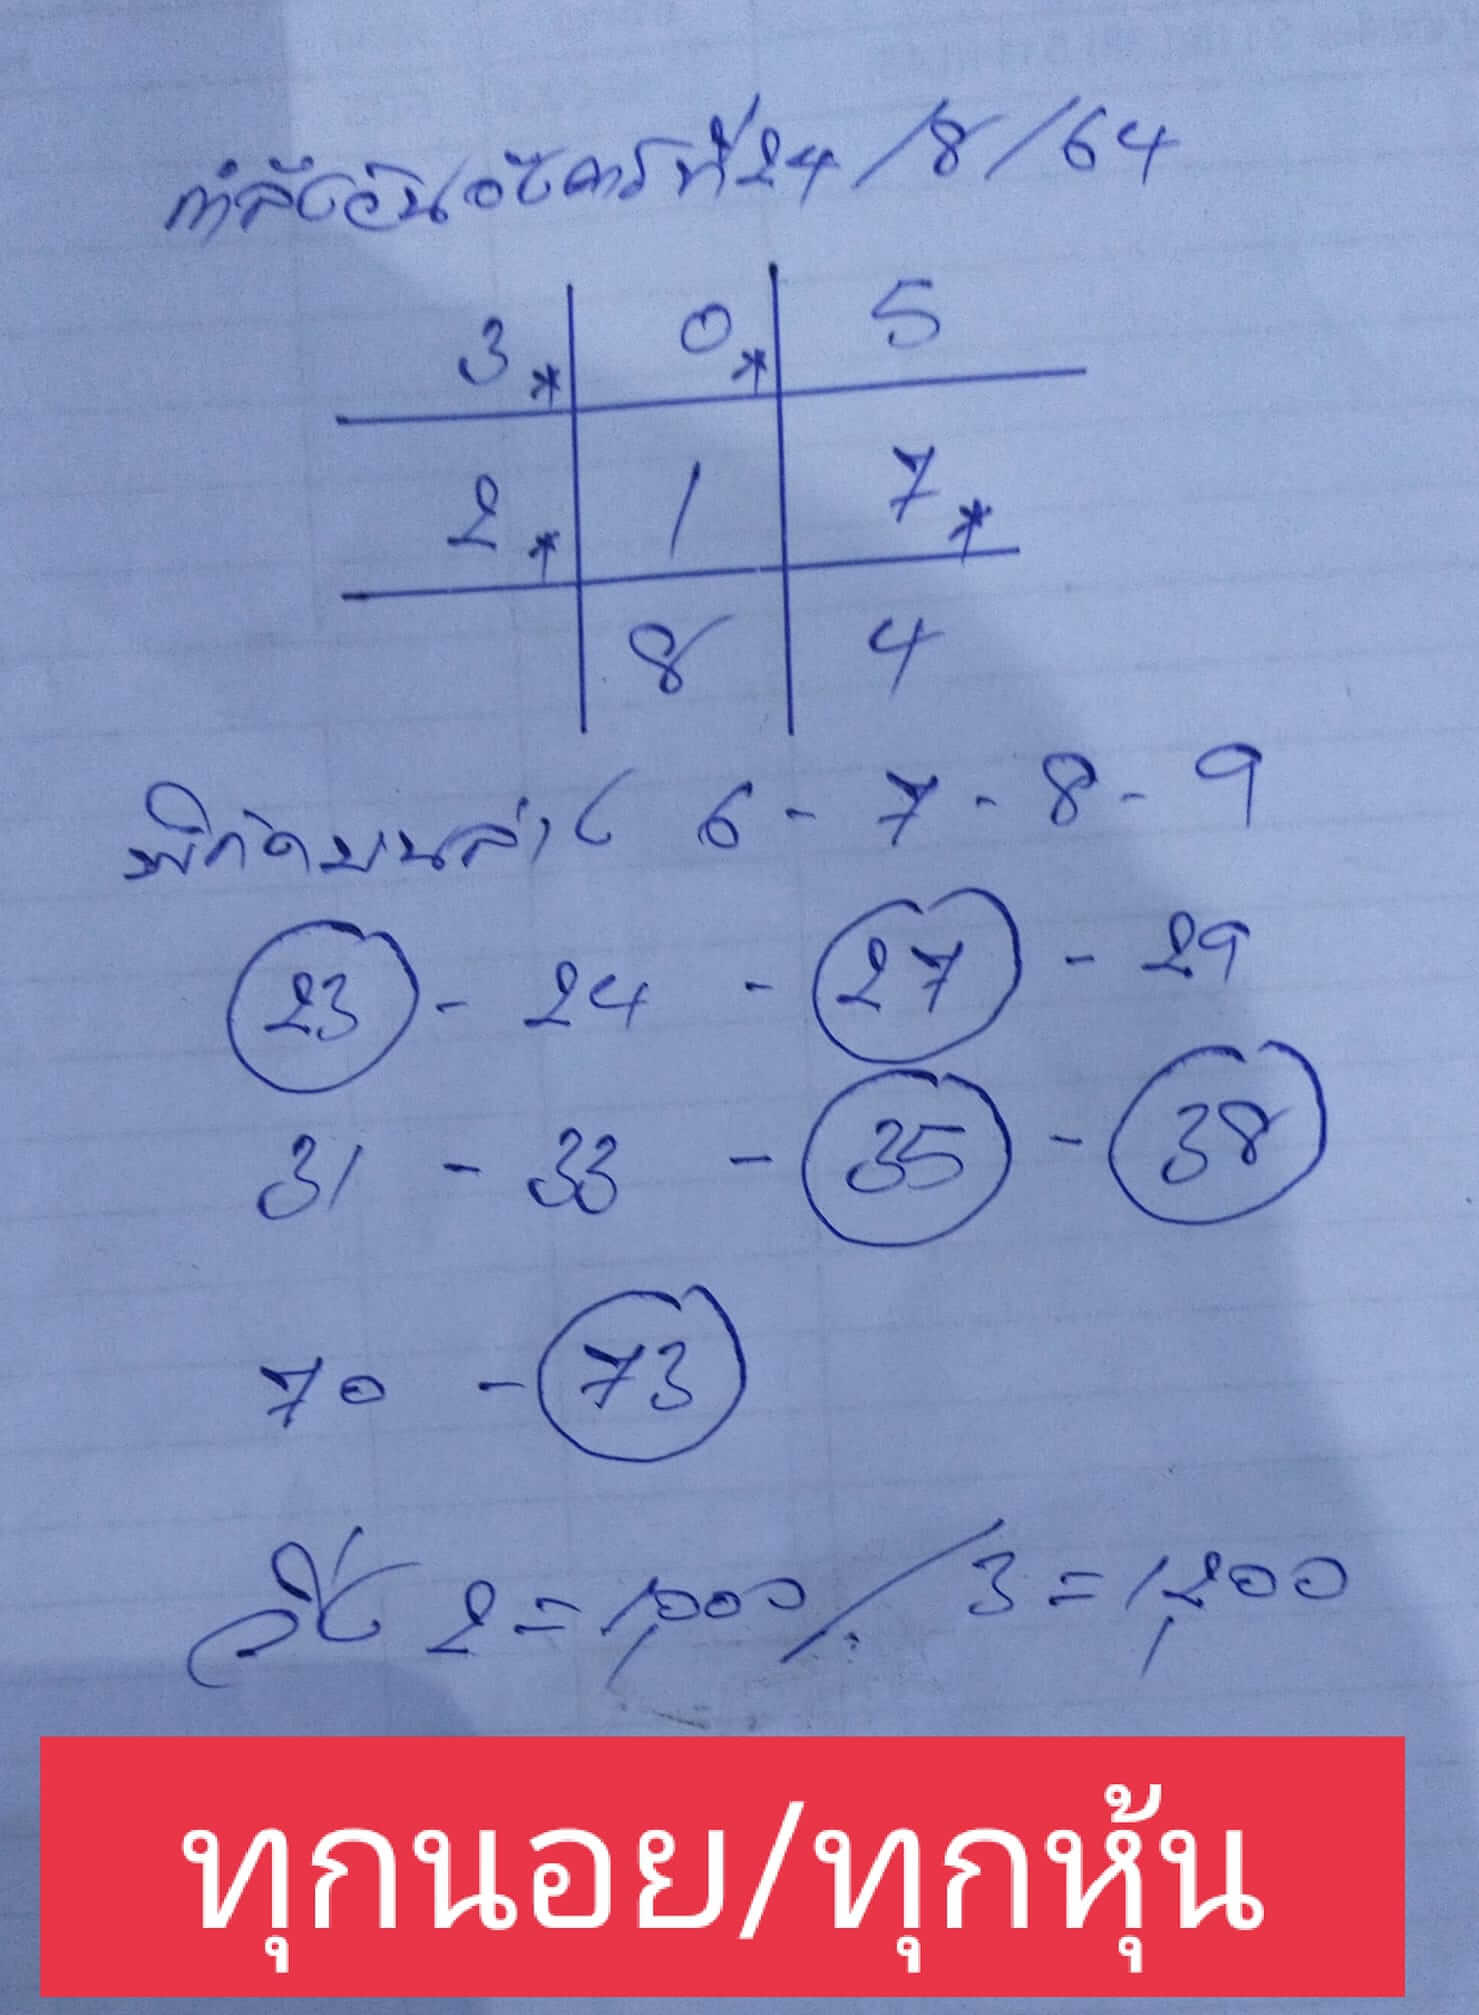 กำลังวันอังคารที่ 24/8/64
3* 0* 5
2* 1 7*
8 4
พิกัดบนล่าง 6 - 7 - 8 - 9
23 - 24 - 27 - 29
31 - 33 - 35 - 38
70 - 73
วิ่ง 2 = 1,000 / 3 = 1,200
ทุกนอย/ทุกหุ้น